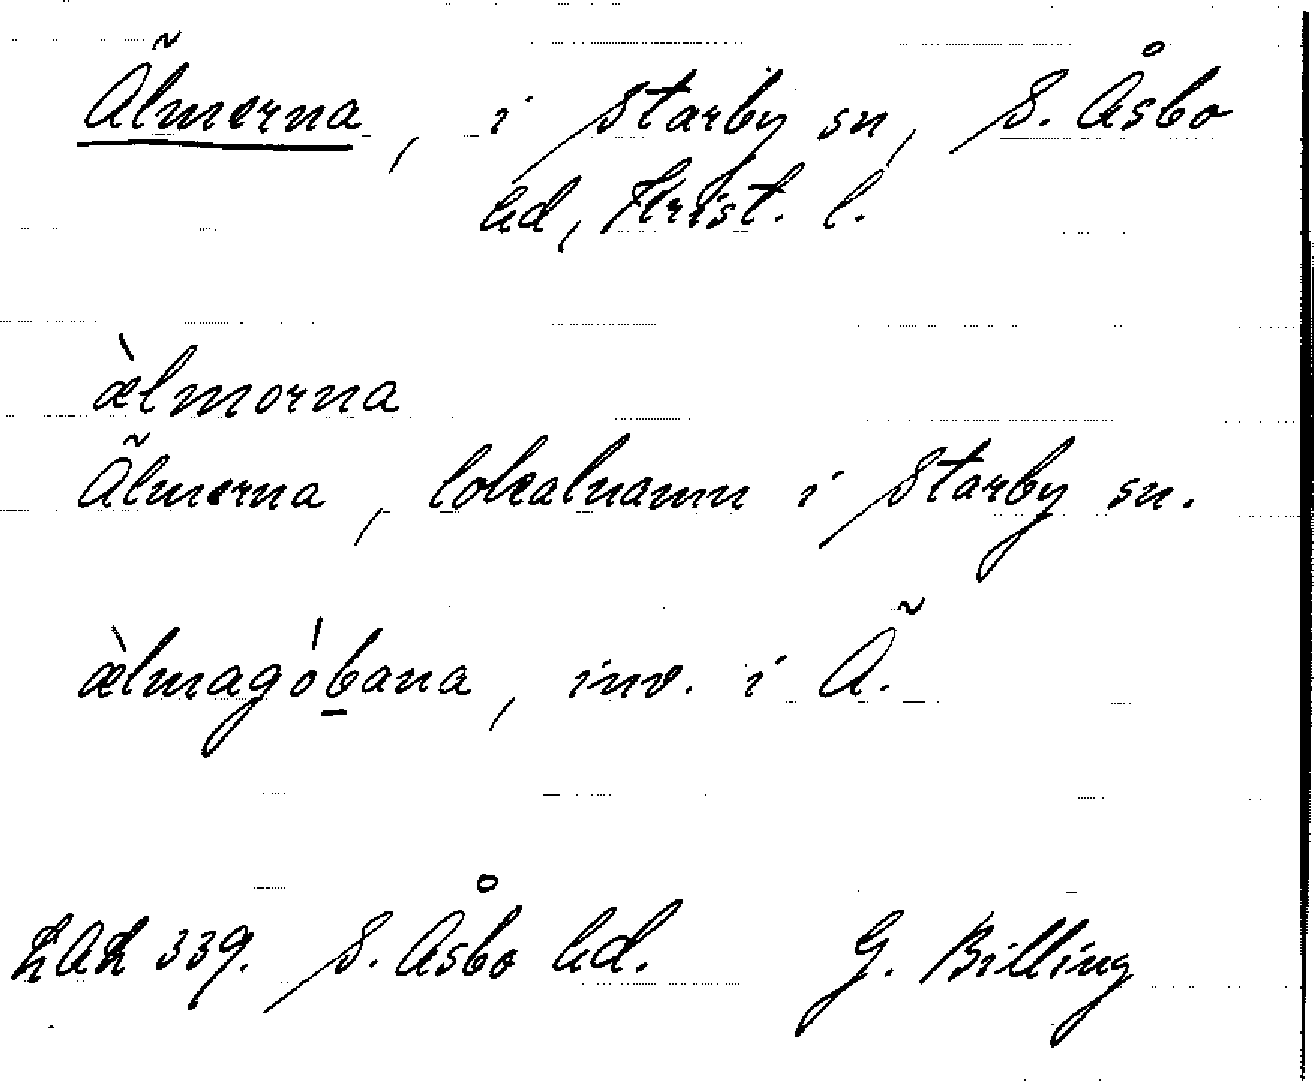 Älmerna, i Starby sn, S. Åsbo
hd, Krist. l.
æ̀lmorna
Älmerna, lokalnamn i Starby sn.
æ̀lmagóbana, inv. i Ä.
LAL 339. S. Åsbo hd. G. Billing